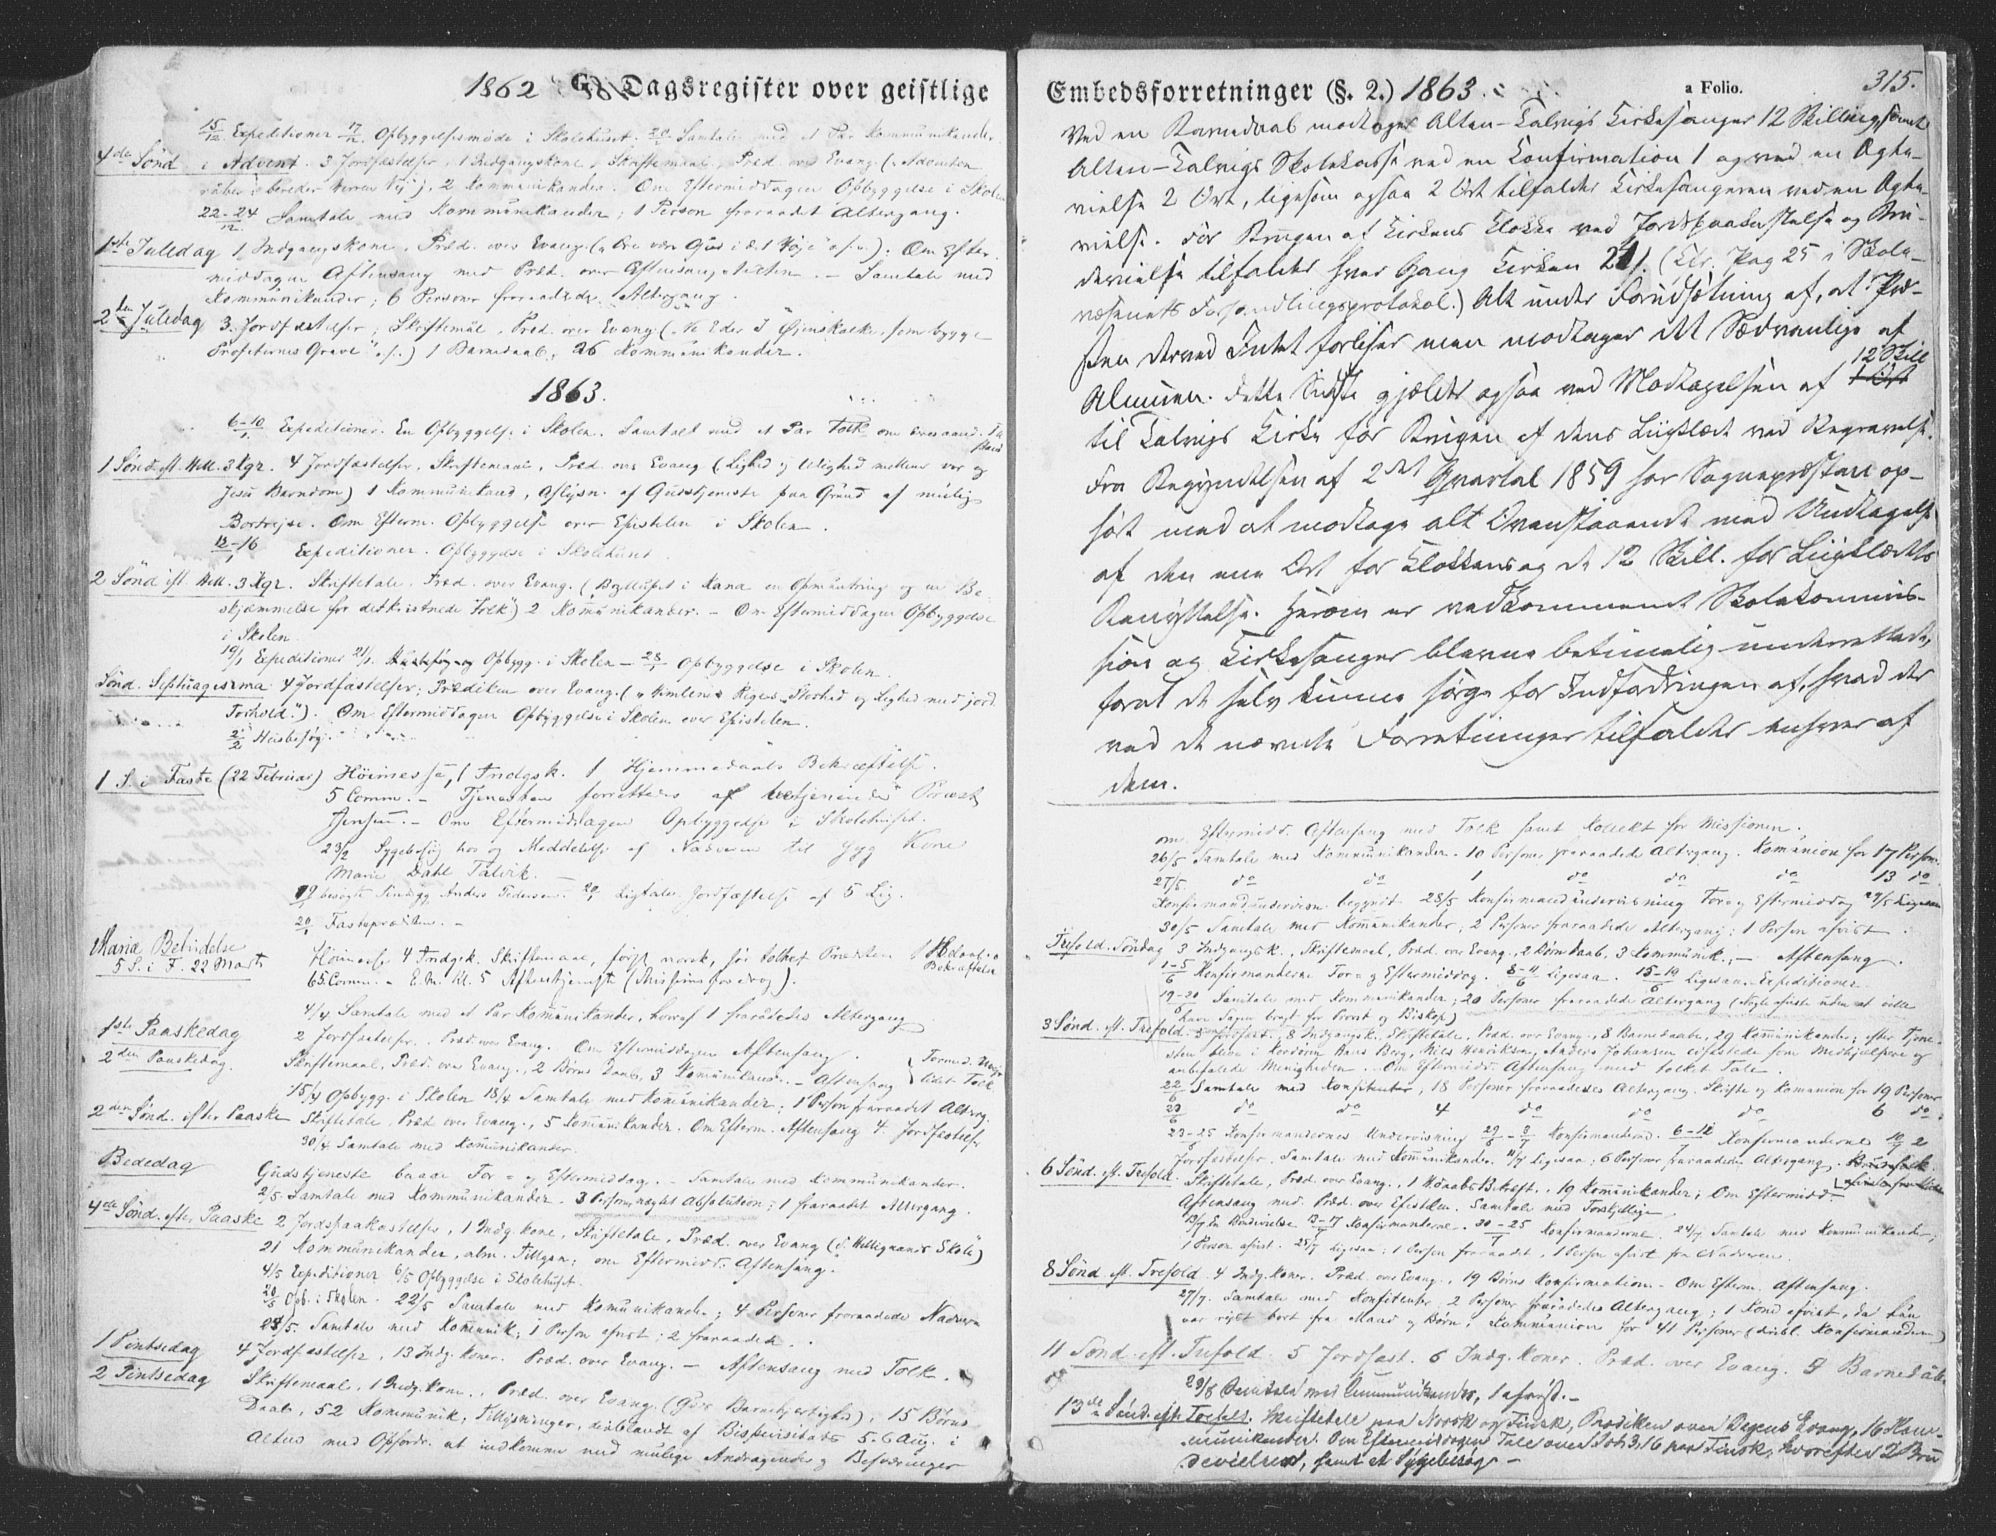 1862 G. Dagsregister over geistlige
15/12 Expeditioner 17/12 Opbyggelsesmøde i Skolehuset. 20 Samtale med et Par Kommunikander.
4de Sønd i Advent. 3 Jordfæstelser, 1 Indgangskone, Skriftemaal, Præd. over Evang. („Adventen
raaber: bereder Herren Vej"), 2 Kommunikander. Om Eftermiddagen Opbyggelse i Skolen
22-24/12 Samtale med Kommunikander; 1 Person fraraadet Altergang.
1ste Juledag 1 Indgangskone, Præd. over Evang. („Ære være Gud i d. Høje" o.s.v.). Om Efter-
middagen Aftensang med Præd. over Aftensangstexten. - Samtale med
Kommunikander; 6 Personer fraraadede Altergang.
2den Juledag 3 Jordfæstelser, Skriftemaal, Præd. over Evang. („Ve Eder I Øienskalke, som bygge
Profeternes Grave" o.s.v.) 1 Barnedaab, 26 Kommunikander.
1863.
6-10/1 Expeditioner. En Opbyggelse i Skolen. Samtale med et Par Folk om
1 Sønd. eft. Hell. 3 Kgr. 4 Jordfæstelser, Skriftemaal, Præd. over Evang (Lighed og Ulighed mellem vor og
Jesu Barndom) 1 Kommunikand, Aflysn. af Gudstjeneste paa Grund af muelig
Bortrejse. Om Efterm. Opbyggelse over Epistelen i Skolen.
13-16/1 Expeditioner. Opbyggelse i Skolehuset.
2 Sønd eft. Hell. 3 Kgr. Skriftetale. Præd. over Evang. (Bryllupet i Kana en Opmuntring og en Be-
skjæmmelse for det kristnede Folk") 2 Kommunikander. - Om Eftermiddagen Opbyggelse
i Skolen.
19/1 Expeditioner 21/1 Husbesøg og Opbygg. i Skolen - 28/1 Opbyggelse i Skolen.
Sønd. Septuagesima 4 Jordfæstelser, Prædiken over Evang. („Himlenes Riges Storhed og Lighed med jord.
Forhold"). Om Eftermiddagen Opbyggelse i Skolen over Epistelen.
2/2 Husbesøg.
1 S. i Faste (22 Februar) Høimesse, 1 Indgsk. 1 Hjemmedaabs Bekræftelse.
5 Comm. - Tjenesten forrettedes af betjenende Provst
Jensen. - Om Eftermiddagen Opbyggelse i Skolehuset.
23/2 Sygebesøg hos og Meddelelse af Nadveren til syg Kone
Marie Dahl Talvik. -
besøgte Sindsyg Anders Pedersen. 20 Ligtale. Jordfæstelse af 5 Lig.
20 Fasteprædiken. -
Maria Bebudelse
5 S. i F. 22 Marts Høimesse 4 Indgsk. Skriftemaal, først norsk, saa tolket Prædiken 1 Hdaabs
Bekræftelse
65 Comm. - E.M. Kl. 5 Aftentjeneste (Missionsforedrag).
4/4 Samtale med et Par Kommunikander, hvoraf 1 fraraadedes Altergang
1ste Paaskedag 2 Jordfæstelser. Præd. over Evang. Om Eftermiddagen Aftensang.
2den Paaskedag. Skriftemaal, Præd. over Evang., 2 Børns Daab, 3 Kommunikand. - Aftensang
15/4 Opbygg. i Skolen 18/4 Samtale med Kommunikander; 1 Person fraraadet Alterg.
2den Sønd. efter Paaske Skriftetale, Præd over Evang., 5 Kommunikander. Om Efterm. Aftensang 4 Jordfæstelser
30/4 Samtale med Kommunikander.
Bededag Gudstjeneste baade For- og Eftermiddag. - Samtale med Kommunikander.
2/5 Samtale med Kommunikander. 3 Personer nægtet Absolution; 1 fraraadet Altergang.
4de Sønd. efter Paaske 2 Jordspaakastelser, 1 Indg.kone, Skriftetale, Præd. over Evang (d. Helligaands Skole")
21 Kommunikander, alm. Tillysn.; om Eftermidd. Aftensang.
4/5 Expeditioner 6/5 Opbyggelse i Skolehuset.
20/5 Opb. i Skolen. 22/5 Samtale med Kommunikander; 4 Personer fraraadede Nadveren
23/5. Samtale med Kommunik; 1 Person afvist; 2 fraraadet.
1 Pintsedag 4 Jordfæstelser, 13 Indg. koner. Præd. over Evang. - Aftensang med Tolk.
2 Pintsedag Skriftemaal, 1 Indg.kone, Præd. over Evang. (Guds Barmhjertighed), 15 Børns
Daab, 52 Kommunik., Tillysninger, deriblandt af Bispevisitats 5-6 Aug. i
Alten med Opfordr. at indkomme med mulige Andragender og Besværinger
Embedsforretninger (§. 2.) 1863. a Folio. 315.
Ved en Barnedaab modtager Alten-Talvigs Kirkesanger 12 Skilling, samt
Alten-Talvigs Skolekasse ved en Confirmation 1 og ved en Ægte-
vielse 2 Ort, ligesom ogsaa 2 Ort tilfalder Kirkesangeren ved en Ægte-
vielse. For Brugen af Kirkens Klokke ved Jordspaakastelse og Bru-
devielse tilfalder hver Gang Kirken 24 /. (Cfr. Pag 25 i Skole-
væsenets Forhandlingsprotokol.) Alt under Forudsætning af, at Præ-
sten derved Intet forliser men modtager det Sædvanlige af
Almuen. Dette Sidste gjælder ogsaa ved Modtagelsen af 1 Ort 12 Skill
til Talvigs Kirke for Brugen af dens Liigklæde ved Begravelse.
Fra Begyndelsen af 2det Qvartal 1859 har Sognepræsten op-
hørt med at modtage alt Ovenstaaende med Undtagelse
af den ene Ort for Klokken og de 12 Skill. for Liigklædets
Benyttelse. Herom er vedkommende Skolekommis-
sion og Kirkesanger blevne betimelig underrettede,
forat de selv kunne sørge for Indfordringen af, hvad der
ved de nævnte Forretninger tilfalder enhver af
dem.
om Eftermidd. Aftensang med Tolk samt Kollekt for Missionen.
26/5 Samtale med Kommunikander. 10 Personer fraraadede Altergang. Komunion for 17 Person.
27/5. do do 1 do do do 13 do
Konfirmandundervisn. begyndt 28/5 Konfirmandundervisning For- og Eftermiddag 29/5 Ligesaa
30/5 Samtale med Kommunikander; 2 Personer fraraadede Altergang; 1 Person afvist.
Trefold. Søndag 3 Indgangsk., Skriftemaal, Præd. over Evang., 2 Børn Daab, 3 Kommunik. - Aftensang.
1-5/6 Konfirmanderne For- og Eftermiddag. 8-11/6 Ligesaa. 15-19/6 Ligesaa. Expeditioner
19-20/6 Samtale med Kommunikander; 20 Personer fraraadede Altergang (Nogle afviste uden at ville
have Sagen bragt for Provst og Biskop)
3 Sønd. eft. Trefold. 3 Jordfæst., 8 Indgangsk. Skriftetale, Præd. over Evang., 8 Barnedaabe, 29 Kommunikander; efter Tjene-
sten bleve i Kordøren Hans Berg, Nils Henriksen, Anders Johansen indsatte som Medhjælpere og
anbefalede Menigheden. Om Eftermidd. Aftensang med tolket Tale.
22/6 Samtale med Konfitenter, 18 Personer fraraadedes Altergang. Skrifte og Komunion for 19 Personer
23/6 do do 4 do do do 6 do
23-25/6 Konfirmandernes Undervisning 29/6-3/7 Konfirmanderne. 6-10 Konfirmanderne 10/7 2
Jordfæstelser. Samtale med Kommunikander. 11/7 Ligesaa; 6 Personer fraraadede Altergang. Brudefolk
6 Sønd. eft. Trefold. Skriftetale, Præd. over Evang., 1 Hdaabs Bekræft., 19 Kommunikander; Om Eftermidd.
Aftensang med Præd. over Epistlen. Samtale med Forskjellige
13/7 En Brudevielse 13-17/7 Konfirmanderne. 20-25/7 Konfirmanderne. 24/7 Samtale med Kommunikander;
1 Person afvist. 25/7 Ligesaa; 1 Person fraraadet, 1 Person afvist fra Nadveren.
8 Sønd. eft. Trefold. 4 Indg.koner. Præd. over Evang., 19 Børns Konfirmation. Om Efterm. Aftensang.
27/7. Samtale med Konfitenter, 2 Personer fraraadedes Altergang; 1 Kone afvist, da hun
var rejst bort fra Mand og Børn; Kommunion for 41 Personer (inkl. Konfirmander)
11 Sønd. eft. Trefold. 5 Jordfæst. 6 Indg.koner. Præd. over Evang. 9 Barnedaab
29/8 Samtale med Communikander, 1 afvist.-
13de Sønd. eft. Trefold. Skriftetale paa Norsk og Finsk, Prædiken over Dagens Evang., 16 Kom-
munikander. Om Eftermiddagen Tale over Joh 3,16 paa Finsk, hvorefter 2 Bru
devielser, samt et Sygebesøg -